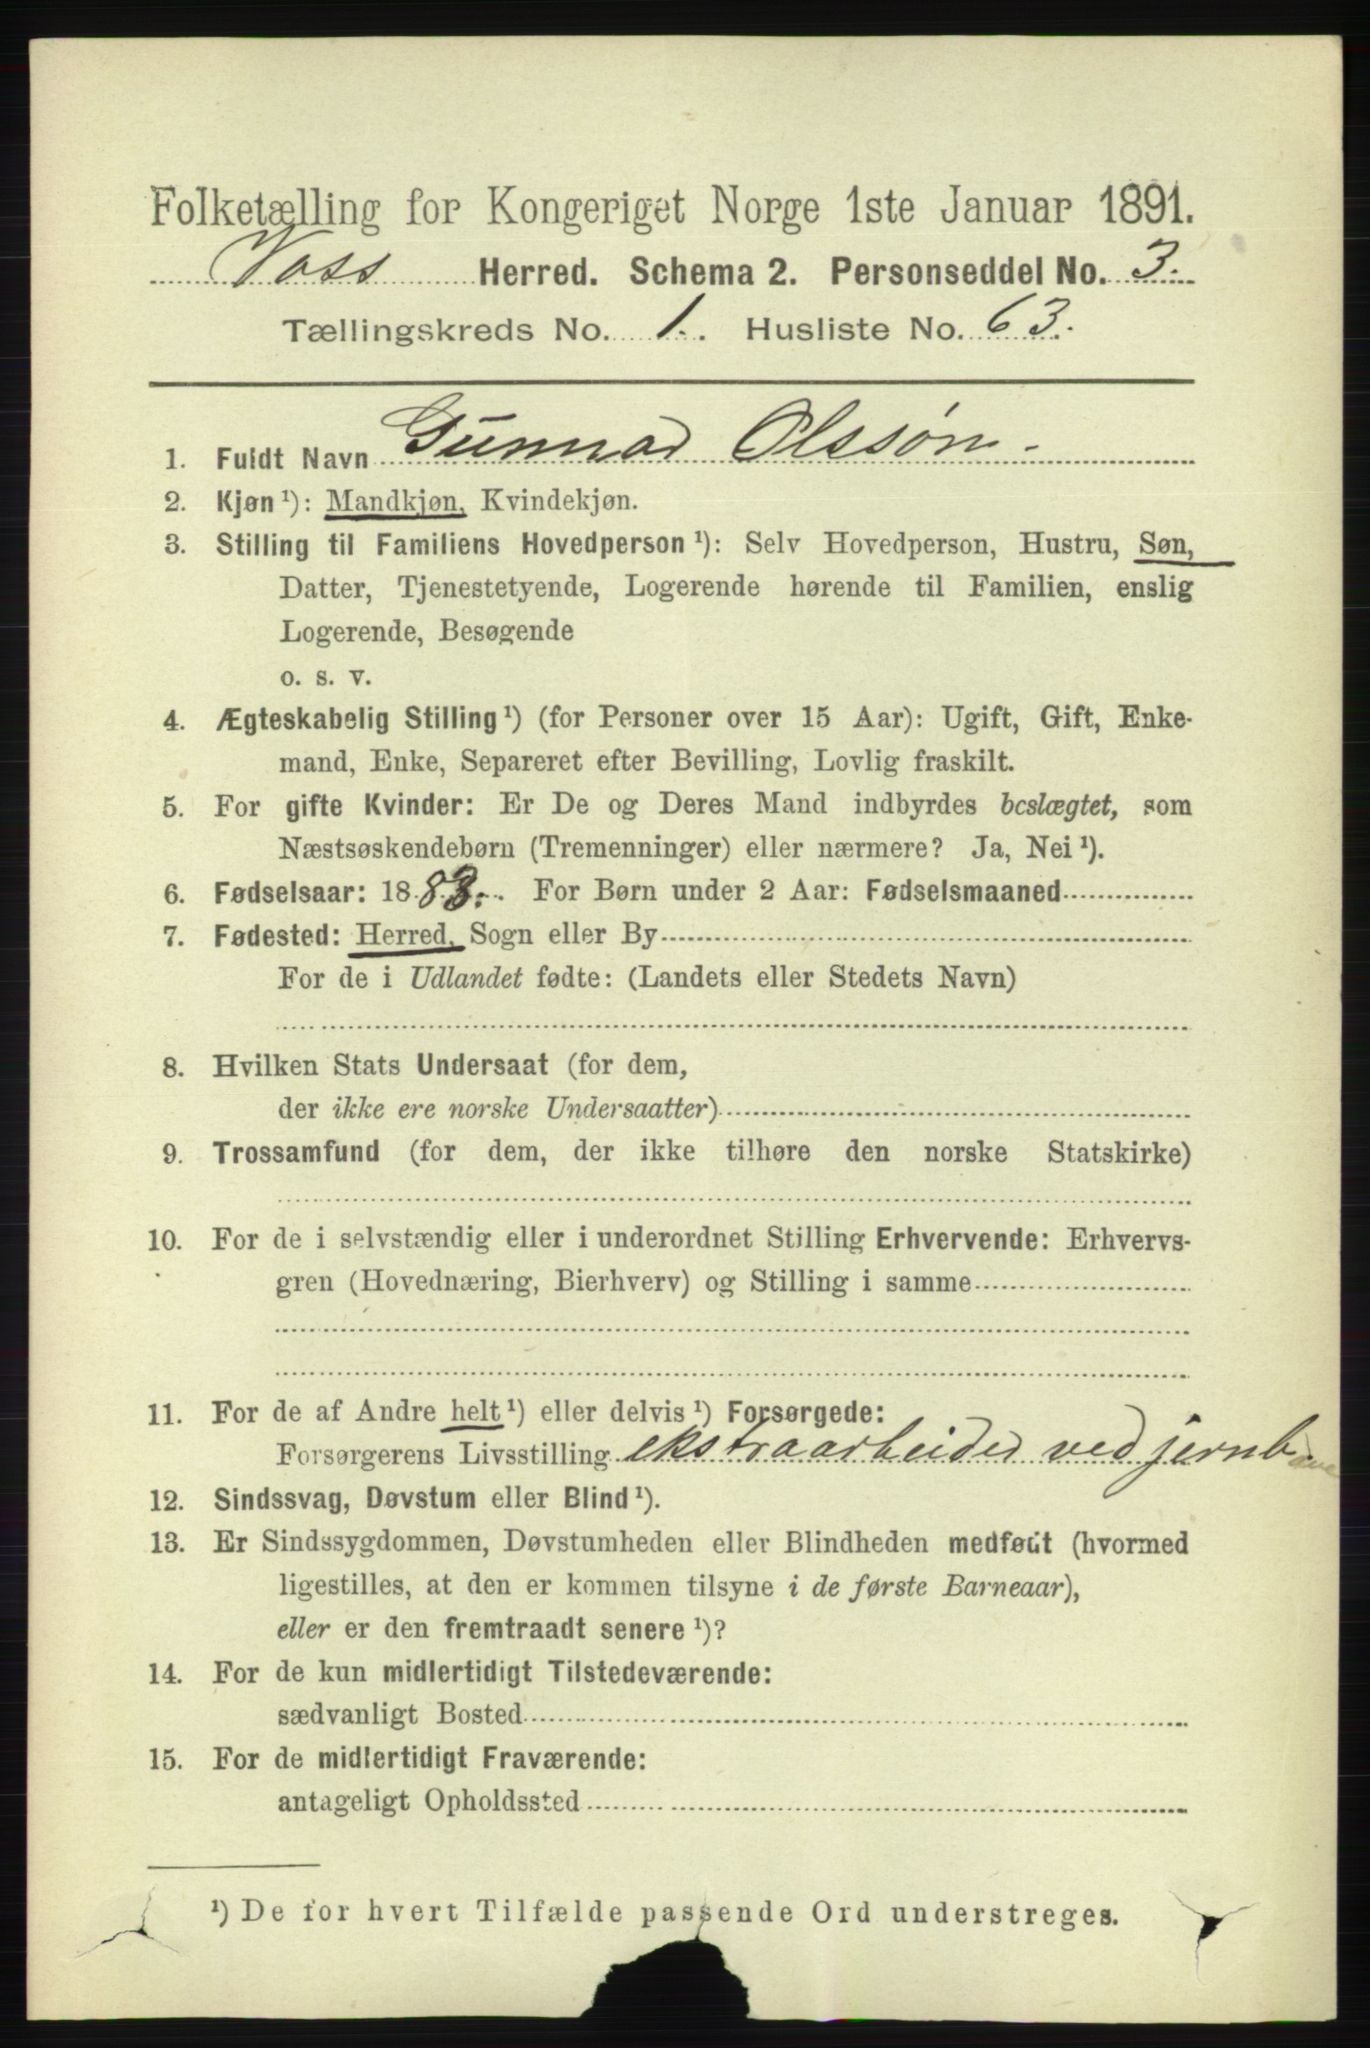 Folketælling for Kongeriget Norge 1ste Januar 1891.
Voss Herred. Schema 2. Personseddel No. 3.
Tællingskreds No. 1. Husliste No. 63.
1. Fuldt Navn Gunnar Olssøn.
2. Kjøn¹): Mandkjøn, Kvindekjøn.
3. Stilling til Familiens Hovedperson¹): Selv Hovedperson, Hustru, Søn,
Datter, Tjenestetyende, Logerende hørende til Familien, enslig
Logerende, Besøgende
o. s. v.
4. Ægteskabelig Stilling¹) (for Personer over 15 Aar): Ugift, Gift, Enke-
mand, Enke, Separeret efter Bevilling, Lovlig fraskilt.
5. For gifte Kvinder: Er De og Deres Mand indbyrdes beslægtet, som
Næstsøskendebørn (Tremenninger) eller nærmere? Ja, Nei¹).
6. Fødselsaar: 1883. For Børn under 2 Aar: Fødselsmaaned
7. Fødested: Herred, Sogn eller By
For de i Udlandet fødte: (Landets eller Stedets Navn)
8. Hvilken Stats Undersaat (for dem,
der ikke ere norske Undersaatter)
9. Trossamfund (for dem, der ikke tilhøre den norske Statskirke)
10. For de i selvstændig eller i underordnet Stilling Erhvervende: Erhvervs-
gren (Hovednæring, Bierhverv) og Stilling i samme
11. For de af Andre helt¹) eller delvis¹) Forsørgede:
Forsørgerens Livsstilling ekstraarbeider ved jernbane
12. Sindssvag, Døvstum eller Blind¹).
13. Er Sindssygdommen, Døvstumheden eller Blindheden medfødt (hvormed
ligestilles, at den er kommen tilsyne i de første Barneaar),
eller er den fremtraadt senere¹)?
14. For de kun midlertidigt Tilstedeværende:
sædvanligt Bosted
15. For de midlertidigt Fraværende:
antageligt Opholdssted
¹) De for hvert Tilfælde passende Ord understreges.